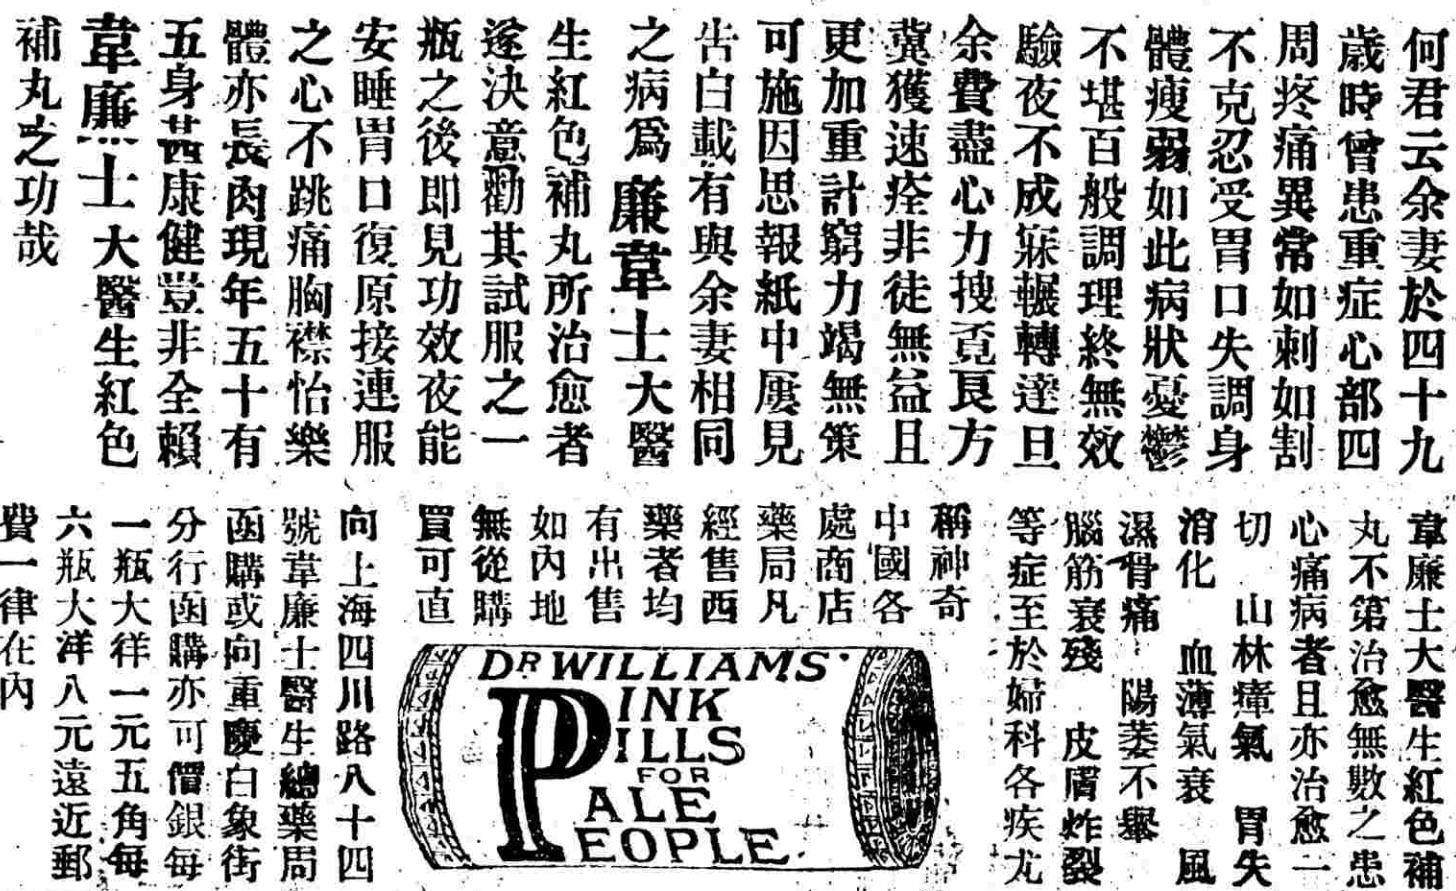 何君云余妻於四十九
歲時曾患重症心部四
周疼痛異常如刺如割
不克忍受胃口失調身
體瘦弱如此病狀憂鬱
不堪百般調理終無效
驗夜不成寐輾轉達旦
余費盡心力搜覓良方
冀獲速痊非徒無益且
更加重計窮力竭無策
可施因思報紙中屢見
告白載有與余妻相同
之病爲廉韋士大醫
生紅色補丸所治愈者
遂決意勸其試服之一
瓶之後即見功效夜能
安睡胃口復原接連服
之心不跳痛胸襟怡樂
體亦長肉現年五十有
五身甚康健豈非全賴
韋廉士大醫生紅色
補丸之功哉
韋廉士大醫生紅色補
丸不第治愈無數之患
心痛病者且亦治愈一
切 山林瘴氣 胃失
消化 血薄氣衰 風
濕骨痛 陽萎不舉
腦筋衰殘 皮膚炸裂
等症至於婦科各疾尤
稱神奇
中國各
處商店
藥局凡
經售西
藥者均
有出售
如內地
無從購
買可直
向上海四川路八十四
號韋廉士醫生總藥局
函購或向重慶白象街
分行函購亦可價銀每
一瓶大洋一元五角每
六瓶大洋八元遠近郵
費一律在內
DR WILLIAMS'
PINK
PILLS
FOR
PALE
PEOPLE